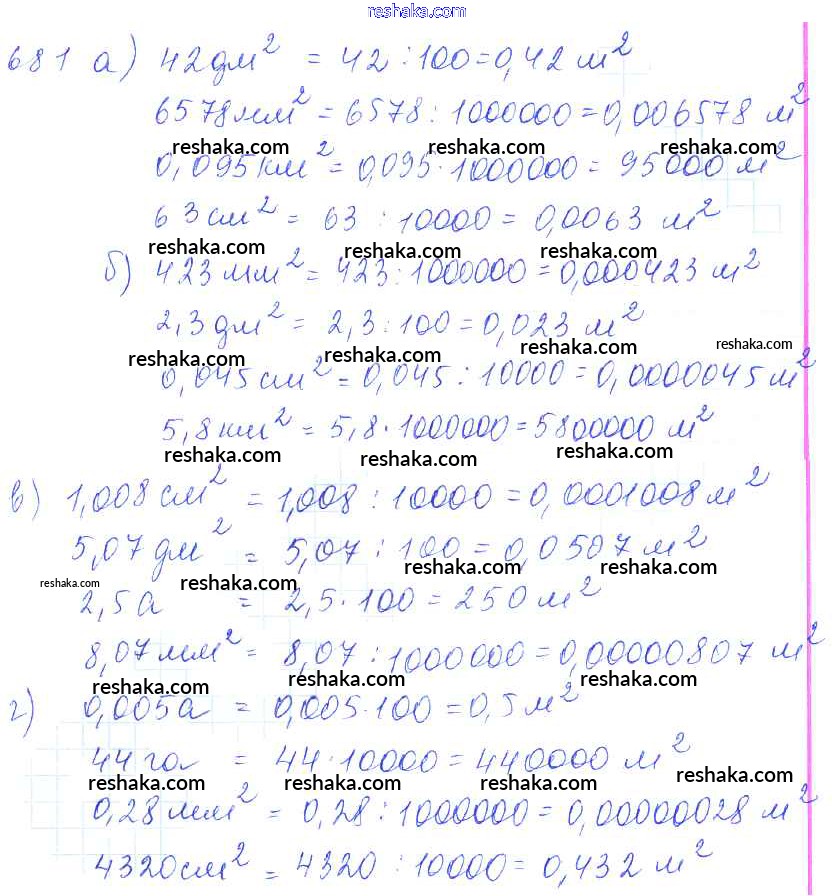 reshaka.com
681 а) 42дм² = 42 : 100 = 0,42 м²
6578мм² = 6578 : 1000000 = 0,006578 м²
reshaka.com reshaka.com reshaka.com
0,095км² = 0,095 · 1000000 = 95000 м²
63см² = 63 : 10000 = 0,0063 м²
reshaka.com reshaka.com reshaka.com
б) 423 мм² = 423 : 1000000 = 0,000423 м²
2,3 дм² = 2,3 : 100 = 0,023 м²
reshaka.com reshaka.com reshaka.com reshaka.com
0,045см² = 0,045 : 10000 = 0,0000045 м²
5,8км² = 5,8 · 1000000 = 5800000 м²
reshaka.com reshaka.com reshaka.com
в) 1,008см² = 1,008 : 10000 = 0,0001008 м²
5,07дм² = 5,07 : 100 = 0,0507 м²
reshaka.com reshaka.com reshaka.com reshaka.com
2,5а = 2,5 · 100 = 250 м²
8,07мм² = 8,07 : 1000000 = 0,00000807 м²
reshaka.com reshaka.com reshaka.com
г) 0,005а = 0,005 · 100 = 0,5 м²
44 га = 44 · 10000 = 440000 м²
reshaka.com reshaka.com reshaka.com reshaka.com
0,28мм² = 0,28 : 1000000 = 0,00000028 м²
4320см² = 4320 : 10000 = 0,432 м²